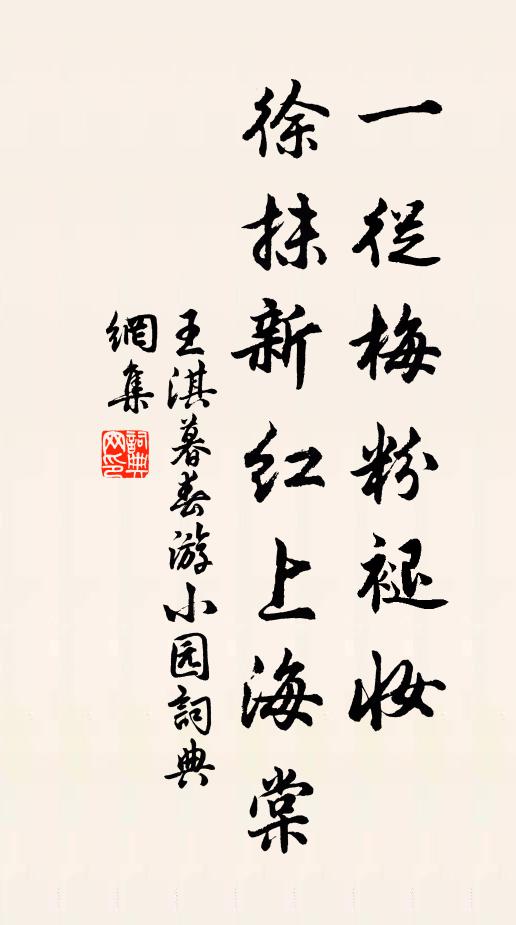 一從梅粉褪妆
徐抹新红上海棠
王淇暮春游小园詞典
網集
詞典
网印